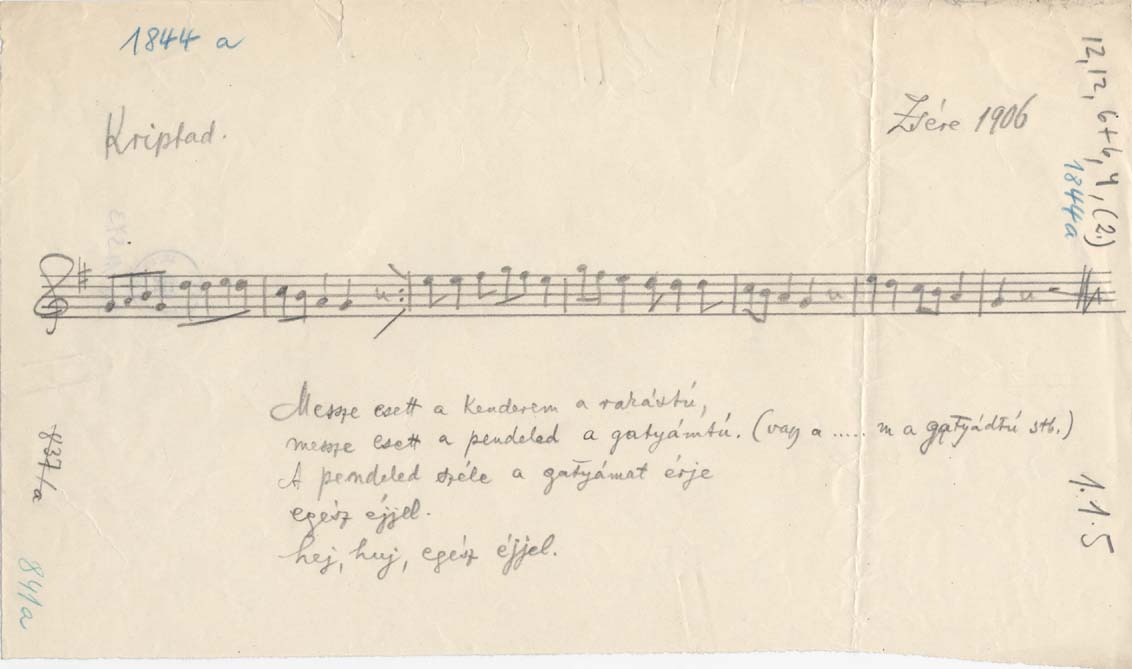 1844 a
Kriptad.
Zsére 1906
12, 12, 6+6, 4, (2.)
1844a
Messze esett a kenderem a rakástú,
messze esett a pendeled a gatyámtú. (vagy a ..... m a gatyádtú stb.)
A pendeled széle a gatyámat érje
egész éjjel.
hej, huj, egész éjjel.
1.1.5
841a